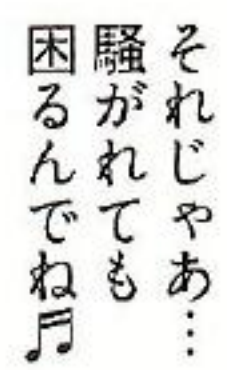 それじゃあ…
騒がれても
困るんでね♬